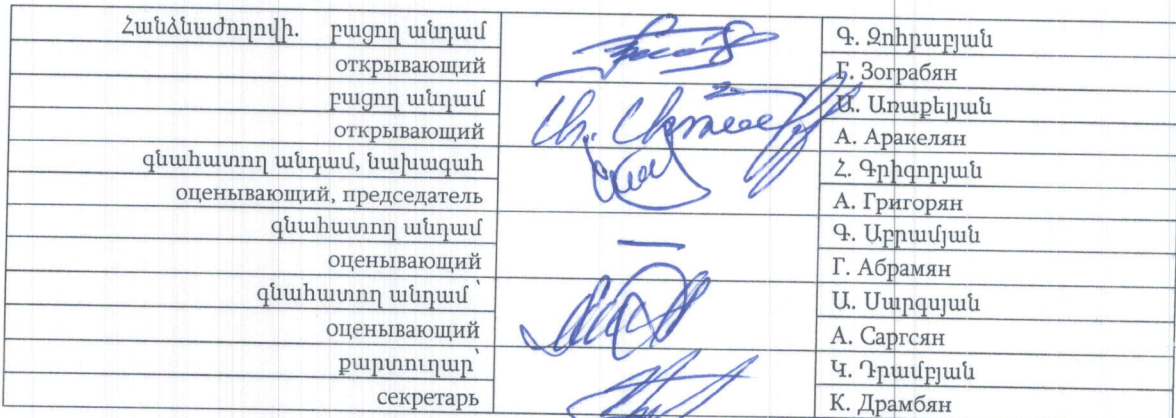 Հանձնաժողովի. բացող անդամ Գ. Զոհրաբյան
открывающий Г. Зограбян
բացող անդամ Ա. Առաքելյան
открывающий А. Аракелян
գնահատող անդամ, նախագահ Հ. Գրիգորյան
оценывающий, председатель А. Григорян
գնահատող անդամ Գ. Աբրամյան
оценывающий Г. Абрамян
գնահատող անդամ՝ Ա. Սարգսյան
оценывающий А. Саргсян
քարտուղար՝ Կ. Դրամբյան
секретарь К. Драмбян